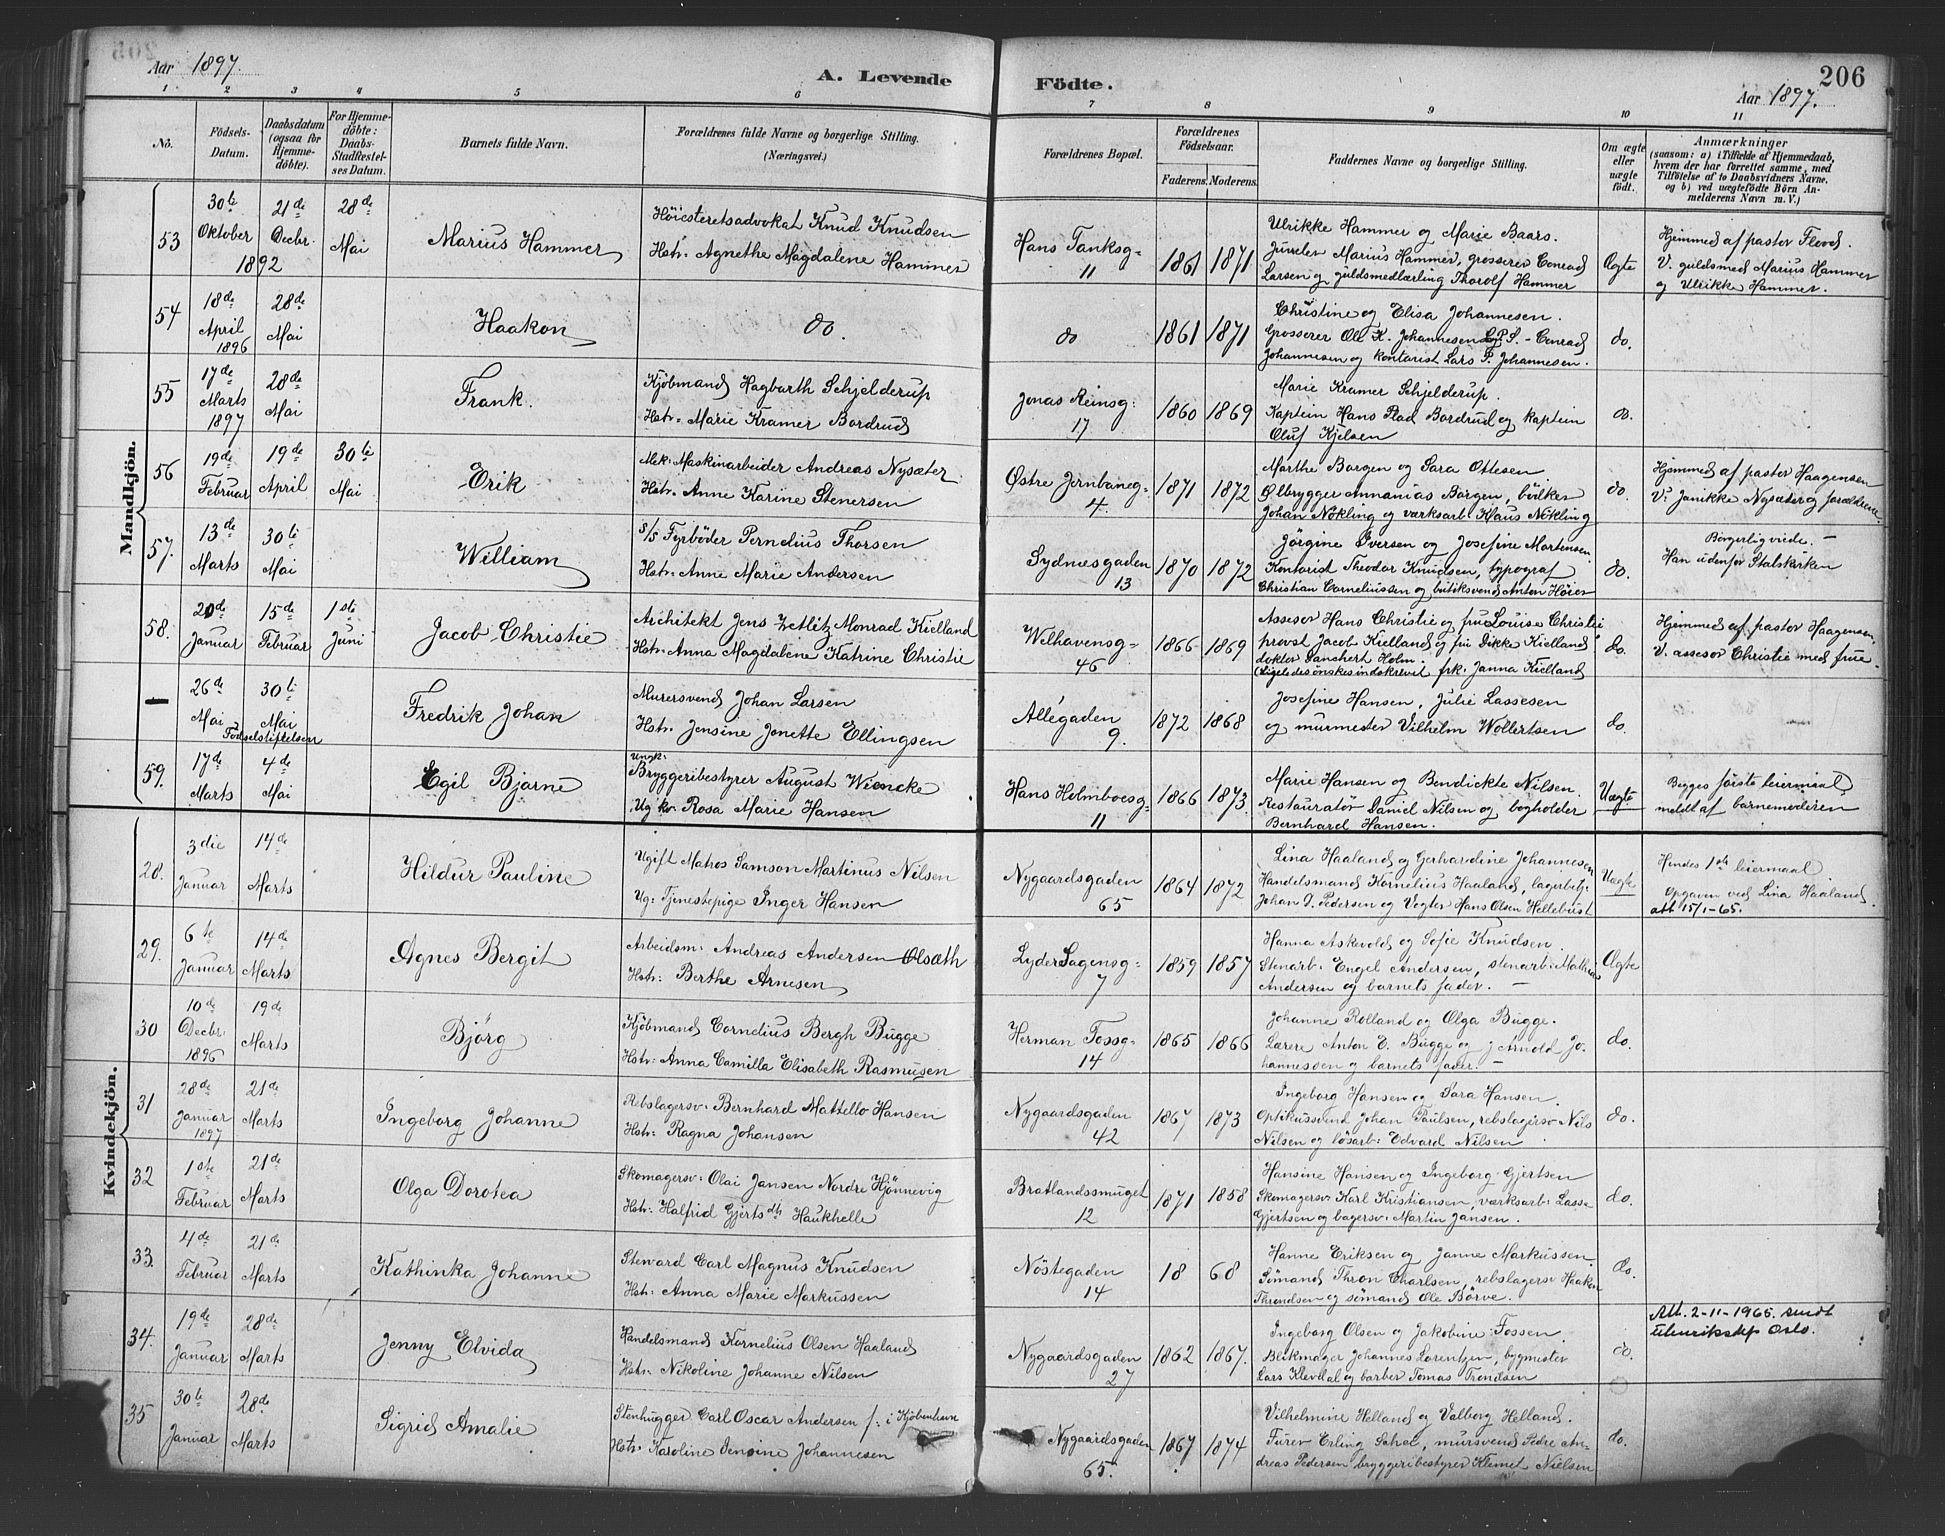 Aar 1897.
A. Levende Födte.
206
Aar 1897.
1 2 3 4 5 6 7 8 9 10 11
No.
Födsels-Datum.
Daabsdatum (ogsaa for Hjemme-döbte).
For Hjemme-döbte: Daabs-Stadfæstel-ses Datum.
Barnets fulde Navn.
Forældrenes fulde Navne og borgerlige Stilling. (Næringsvei.)
Forældrenes Bopæl.
Forældrenes Födselsaar.
Faderens. Moderens.
Faddernes Navne og borgerlige Stilling.
Om ægte eller uægte födt.
Anmærkninger
(saasom: a) i Tilfælde af Hjemmedaab, hvem der har forrettet samme, med Tilföielse af to Daabsvidners Navne. og b) ved uægtefödte Börn An-melderens Navn m.V.)
Mandkjön.
53
30te Oktober 1892
21de Decbr.
28de Mai
Marius Hammer
Höiesteretsadvokat Knud Knudsen
Hstr: Agnethe Magdalene Hammer
Hans Tanksg- 11
1861 1871
Ulrikke Hammer og Marie Baars.
Juveler Marius Hammer, grosserer Conrad
Larsen og guldsmedlærling Thorolf Hammer
Ægte
Hjemmed af pastor
V. guldsmed Marius Hammer
og Ulrikke Hammer.
54
18de April 1896
28de Mai
Haakon
do.
do
1861 1871
Christine og Elisa Johannesen.
Grosserer Ole K. Johannesen Conrad
Johannesen og kontorist Lars P. Johannesen.
do.
55
17de Marts 1897
28de Mai
Frank.
Kjöbmand Hagbarth Schjelderup
Hstr: Marie Kramer Bordrud
Jonas Reinsg: 17
1860 1869
Marie Kramer Schjelderup.
Kaptein Hans Plad Bordrud og kaptein
Oluf Kjelsen
do.
56
19de Februar
19de April
30te Mai
Erik
Mek: Maskinarbeider Andreas Nysæter
Hstr: Anne Karine Stenersen
Østre Jernbaneg- 4.
1871 1872
Marthe Borgen og Sara Ottesen
Ølbrygger Annanias Borgen, bölker
Johan Nökling og værksarb. Klaus Nökling
do.
Hjemmed af pastor Haagensen
V: Janikke Nysæter og forældrene.
57.
13de Marts
30te Mai
William
S/S Fyrböder Perndius Thorsen
Hstr: Anne Marie Andersen
Sydnesgaden 13
1870 1872
Jörgine Iversen og Josefine Martensen
Kontorist Theodor Knudsen, typograf
Christian Corneliussen og butiksvend Anton Höier
do.
Borgerlig viede. —
Han udenfor Statskirken
58.
20de Januar
15de Februar
1ste Juni
Jacob Christie
Architekt Jens Zetlitz Monrad Kielland
Hstr: Anna Magdalene Katrine Christie
Welhavensg- 46
1866 1869
Assesor Hans Christie og fru Louise Christie
provst Jacob Kielland og fru Dikke Kielland
doktor Danchert Holm.
(Ligeledes önskes indskrevet frk. Janna Kielland
do.
Hjemmed af pastor Haagensen
V. assesor Christie med frue
—
26de Mai
30te Mai
Födselstiftelsen
Fredrik Johan
Murersvend Johan Larsen
Hstr: Jensine Jonette Ellingsen
Allégaden 9.
1872 1868
Josefine Hansen, Julie Lassesen
og murmester Vilhelm Wollertsen
do.
59.
17de Marts
4de Mai
Egil Bjarne
Ungk: Bryggeribestyrer August Wiencke
Ug kv. Rosa Marie Hansen
Hans Holmboesg- 11
1866 1873
Marie Hansen og Bendickte Nilsen.
Restauratör Daniel Nilsen og bogholder
Bernhard Hansen.
Uægte
Begges förste leiermaal
meldt af barnemoderen
Kvindekjön.
28.
3die Januar
14de Marts
Hildur Pauline
Ugift Matros Samson Martinus Nilsen
Ug: Tjenestepige Inger Hansen
Nygaardsgaden 65
1864 1872
Lina Haaland og Gerhardine Johannesen
Handelsmand Kornelius Haaland, lagerbetj:
Johan J. Pedersen og Vogter Hans Olsen Hellebust
Uægte
Hendes 1ste leiermaal
Opgaven ved Lina Haaland.
att 15/1-65.
29.
6te Januar
14de Marts
Agnes Bergit
Arbeidsm: Andreas Andersen Olsæth
Hstr: Berthe Arnesen
Lyder Sagensg- 7
1859 1857
Hanna Askevold og Sofie Knudsen.
Stenarb: Engel Andersen, stenarb: Mathias
Andersen og barnets fader. —
Ægte
30
10de Decbr: 1896
19de Marts
Björg
Kjöbmand Cornelius Bergh Bugge
Hstr: Anna Camilla Elisabeth Rasmusen
Herman Fossg- 14
1865 1866
Johanne Rolland og Olga Bugge.
Lærere Anton E. Bugge og J Arnold Jo-
hannessen og barnets fader. —
do.
31
28de Januar 1897
21de Marts
Ingeborg Johanne
Rebslagersv: Bernhard Mattello Hansen
Hstr: Ragna Johansen
Nygaardsgaden 42
1867 1873
Ingeborg Hansen og Sara Hansen.
Optikussvend Johan Paulsen, rebslagersv Nils
Nilsen og losarb: Edvard Nilsen
do.
32
1ste Februar
21de Marts
Olga Dorotea
Skomagersv: Olai Jansen Nordre Hjönnevig
Hstr: Halfrid Gjertsdtr Haukhelle
Bratlandssmuget 12
1871 1858
Hansine Hansen og Ingeborg Gjertsen
Skomagersv: Karl Kristiansen, værksarb: Lasse
Gjertsen og bagersv: Martin Jansen.
do.
33.
4de Februar
21de Marts
Kathinka Johanne
Steward Carl Magnus Knudsen
Hstr: Anna Marie Markussen
Nöstegaden 14
18 68
Hanne Eriksen og Janne Markussen.
Sömand Thron Charlsen, rebslagersv Haakon
Throndsen og sömand Ole Börve.
do.
34.
19de Januar
28de Marts
Jenny Elvida
Handelsmand Kornelius Olsen Haaland
Hstr: Nikoline Johanne Nilsen
Nygaardsgaden 27
1862 1867.
Ingeborg Olsen og Jakobine Fossen.
Blikmager Johannes Lorentzen, bygmester
Lars Klevdal og barber Tomas Trondsen
do.
Att. 2-11-1965. sendt
utenriksdep Oslo.
35
30te Januar
28de Marts
Sigrid Amalie
Stenhugger Carl Oscar Andersen f: i Kjöbenhavn
Hstr: Karoline Jensine Johannesen
Nygaardsgaden 65.
1867 1874
Vilhelmine Helland og Valborg Helland.
Furer Erling mursvend Pedre An-
dreas Pedersen bryggeribestyrer Klemet Nielsen
do.